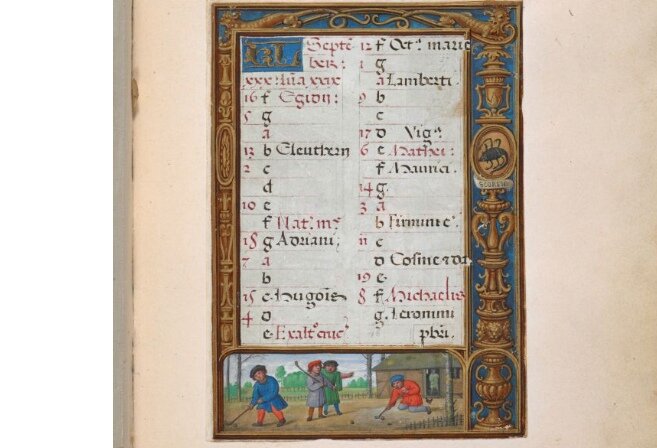 KL Septe
ber:
xxx lūa xxix
16 f Egidij:
5 g
a
13 b Eleutherij
2 c
d
10 e
f Nat: m:
18 g Adriani:
7 a
b
15 c Hugōis
4 d
e Exalt° cruc'
12 f Oct: marie
1 g
a Lamberti.
9 b
c
17 d Vig:
6 e Mathei:
f Maurici.
14 g
3 a
b Firmini e.
11 c
d Cosme & da
19 e
8 f Michaelis
g Ieronimi
pbri.